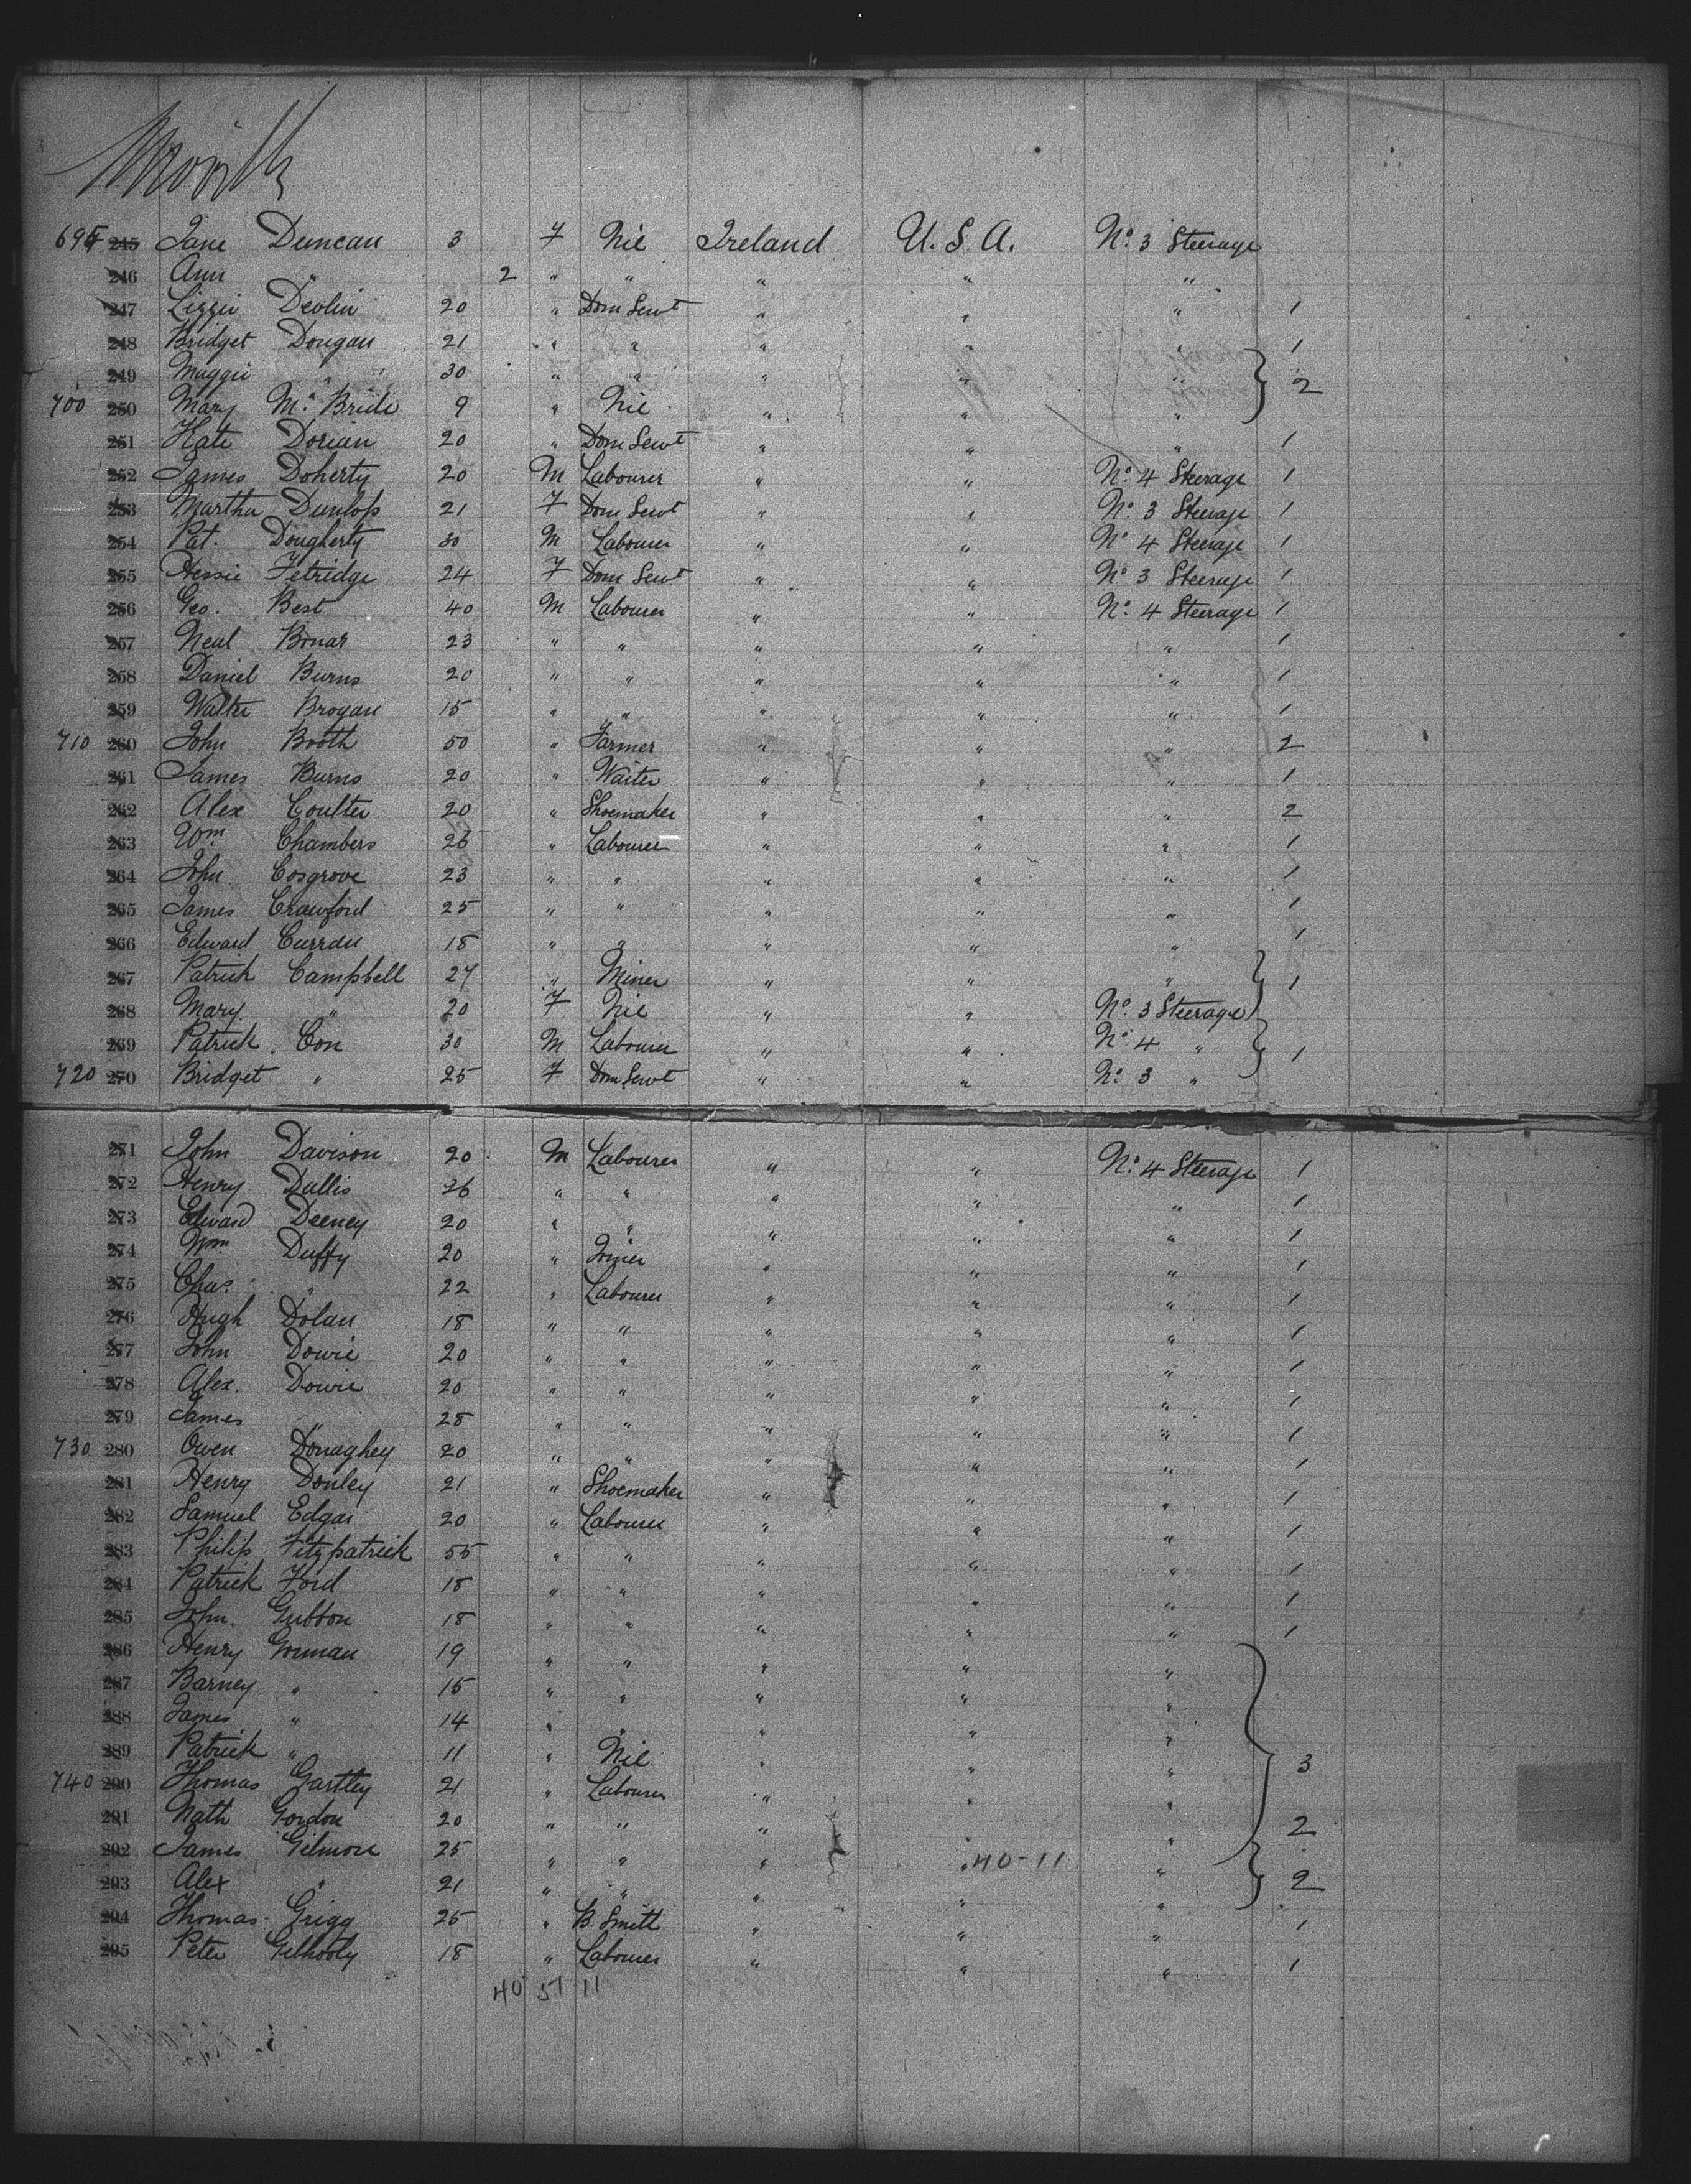 695 245 Jane Duncan 3 F Nil Ireland U.S.A. No. 3 Steerage
246 Ann " 2 " " " " "
247 Lizzie Devlin 20 " Dom Servt " " " 1
248 Bridget Dougan 21 " " " " " 1
249 Maggie " 30 " " " " "
700 250 Mary McBride 9 " Nil " " " 2
251 Kate Dorian 20 " Dom Servt " " " 1
252 James Doherty 20 M Labourer " " No. 4 Steerage 1
253 Martha Dunlop 21 F Dom Servt " " No. 3 Steerage 1
254 Pat. Dougherty 30 M Labourer " " No. 4 Steerage 1
255 Hessie Fetridge 24 F Dom Servt " " No. 3 Steerage 1
256 Geo. Best 40 M Labourer " " No. 4 Steerage 1
257 Neal Bonar 23 " " " " " 1
258 Daniel Burns 20 " " " " " 1
259 Walter Brogan 15 " " " " " 1
710 260 John Booth 50 " Farmer " " " 2
261 James Burns 20 " Waiter " " " 1
262 Alex Coulter 20 " Shoemaker " " " 2
263 Wm Chambers 26 " Labourer " " " 1
264 John Cosgrove 23 " " " " " 1
265 James Crawford 25 " " " " " 1
266 Edward Curran 18 " " " " " 1
267 Patrick Campbell 27 " Miner " " " 1
268 Mary " 20 F Nil " " No. 3 Steerage
269 Patrick Con 30 M Labourer " " No. 4 " 1
720 270 Bridget " 25 F Dom Servt " " No. 3 "
271 John Davison 20 M Labourer " " No. 4 Steerage 1
272 Henry Dallis 26 " " " " " 1
273 Edward Deeney 20 " " " " " 1
274 Wm Duffy 20 " Joiner " " " 1
275 Chas. " 22 " Labourer " " " 1
276 Hugh Dolan 18 " " " " " 1
277 John Dowie 20 " " " " " 1
278 Alex. Dowie 20 " " " " " 1
279 James " 28 " " " " " 1
730 280 Owen Donaghey 20 " " " " " 1
281 Henry Donley 21 " Shoemaker " " " 1
282 Samuel Edgar 20 " Labourer " " " 1
283 Philip Fitzpatrick 55 " " " " " 1
284 Patrick Ford 18 " " " " " 1
285 John Gubbon 18 " " " " " 1
286 Henry Gorman 19 " " " " "
287 Barney " 15 " " " " "
288 James " 14 " " " " "
289 Patrick " 11 " Nil " " " 3
740 290 Thomas Gartley 21 " Labourer " " "
291 Nath Gordon 20 " " " " " 2
292 James Gilmore 25 " " " " 40-11 "
293 Alex " 21 " " " " " 2
294 Thomas Grigg 25 " B. Smith " " " 1
295 Peter Gilhooly 18 " Labourer " " " 1
40 51 11